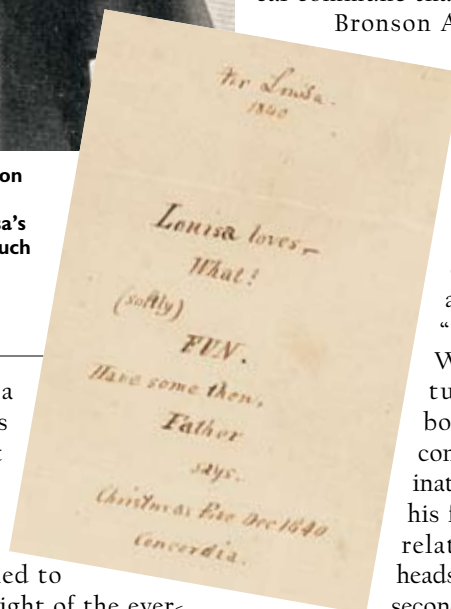 ear commune
Bronson A
on
sa's
uch
For Louisa.
1840
Louisa loves—
What!
(softly)
FUN.
Have some then,
Father
says.
Christmas Eve Dec 1840
Concordia.
a
s
ed to
ight of the ever-
a
“
W
tu
bo
con
inat
his f
relat
heads
secon